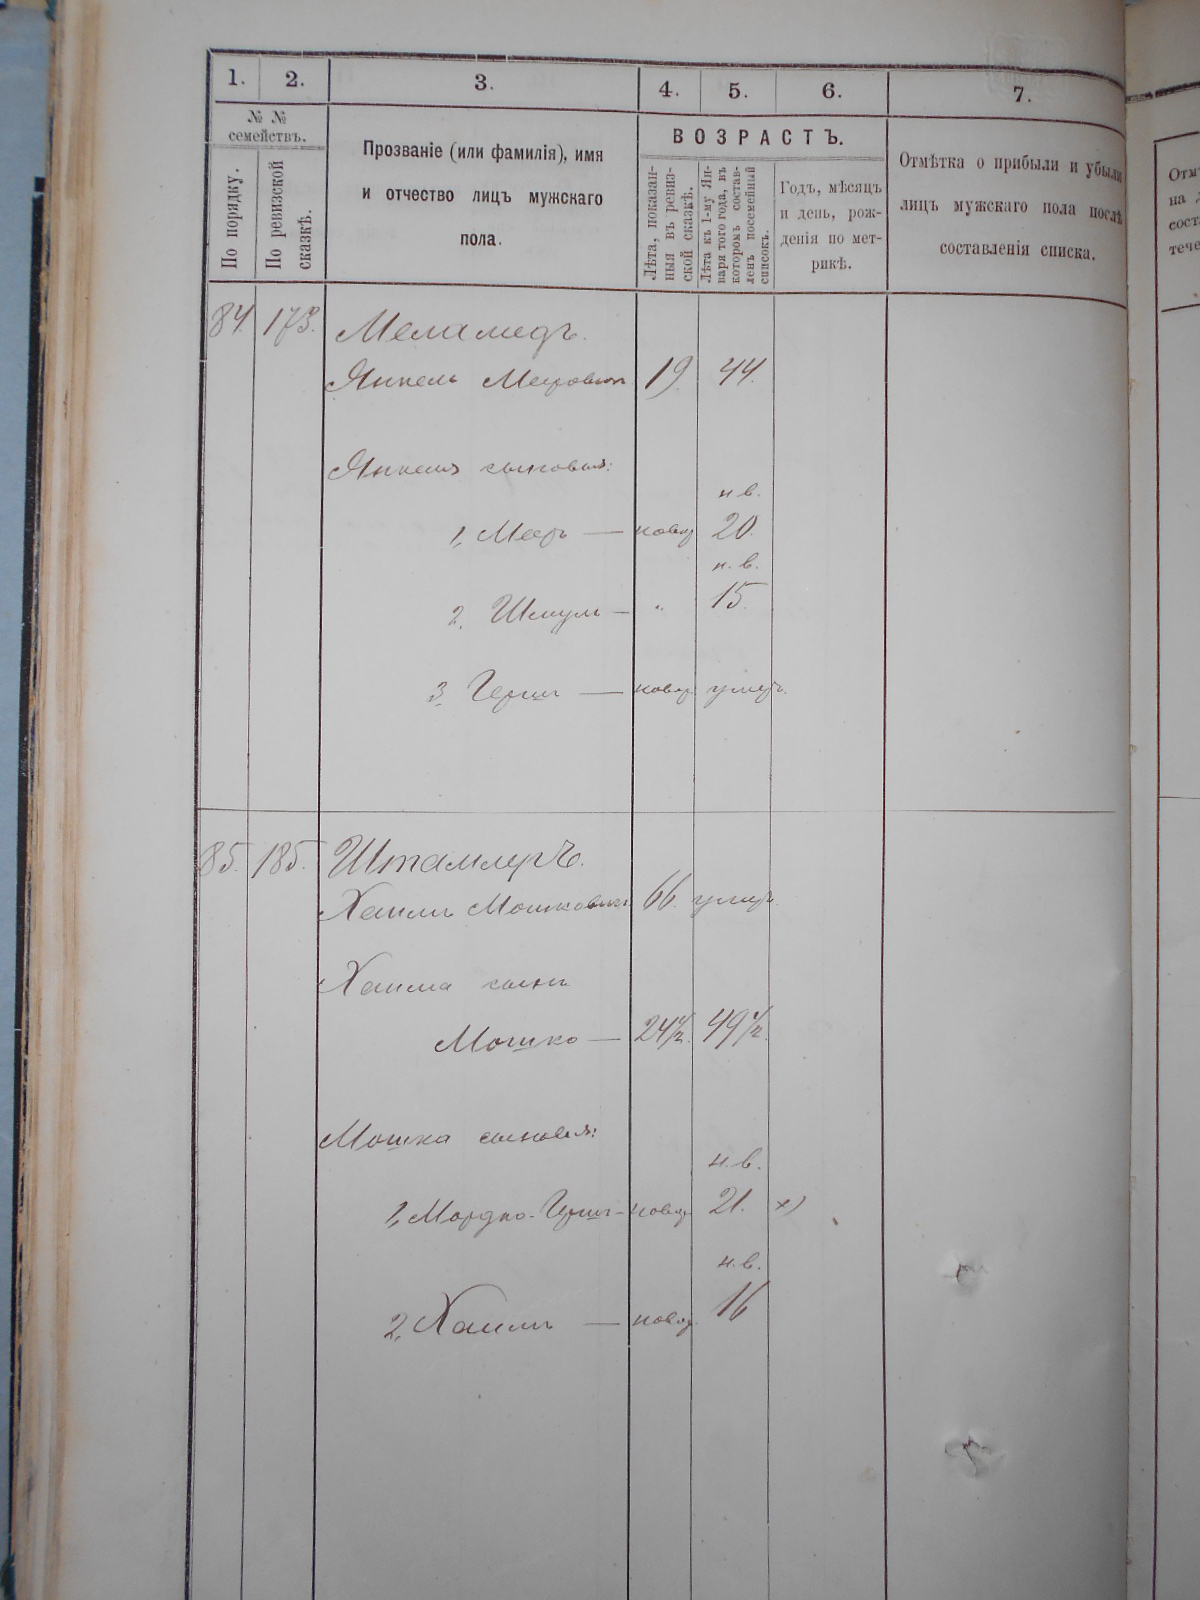 1. 2. 3. 4. 5. 6. 7.
№ №
семействъ.
По порядку.
По ревизской
сказкѣ.
Прозваніе (или фамилія), имя
и отчество лицъ мужскаго
пола.
ВОЗРАСТЪ.
Лѣта, показан-
ныя въ ревиз-
ской сказкѣ.
Лѣта къ 1-му Ян-
варя того года, въ
которомъ состав-
ленъ посемейный
списокъ.
Годъ, мѣсяцъ
и день, рож-
денія по мет-
рикѣ.
Отмѣтка о прибыли и убыли
лицъ мужскаго пола послѣ
составленія списка.
84. 173. Меламедъ.
Янкель Мееровичъ 19. 44.
Янкеля сыновья:
н.в.
1, Мееръ — новор 20.
н.в.
2, Шмуль — " 15.
3, Гершъ — новор. умеръ.
85. 185. Штамлеръ.
Хаимъ Мошковичъ 66. умеръ.
Хаима сынъ
Мошко — 24½. 49½.
Мошка сыновья:
н.в.
1, Мордко-Гершъ - новор 21. х)
н.в.
2, Хаимъ — новор. 16
Отм
на
сост
тече